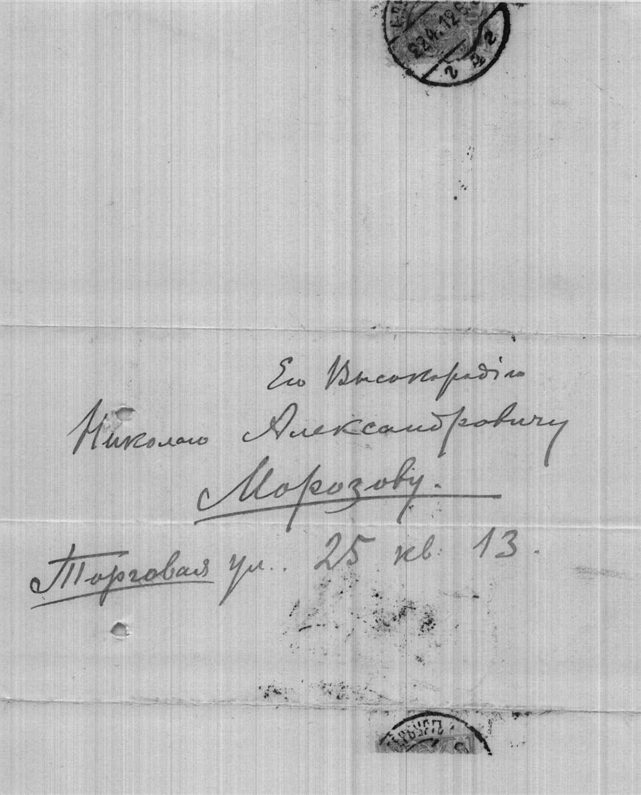 22.4.12
Его Высокородію
Николаю Александровичу
Морозову.
Торговая ул. 25 кв. 13.